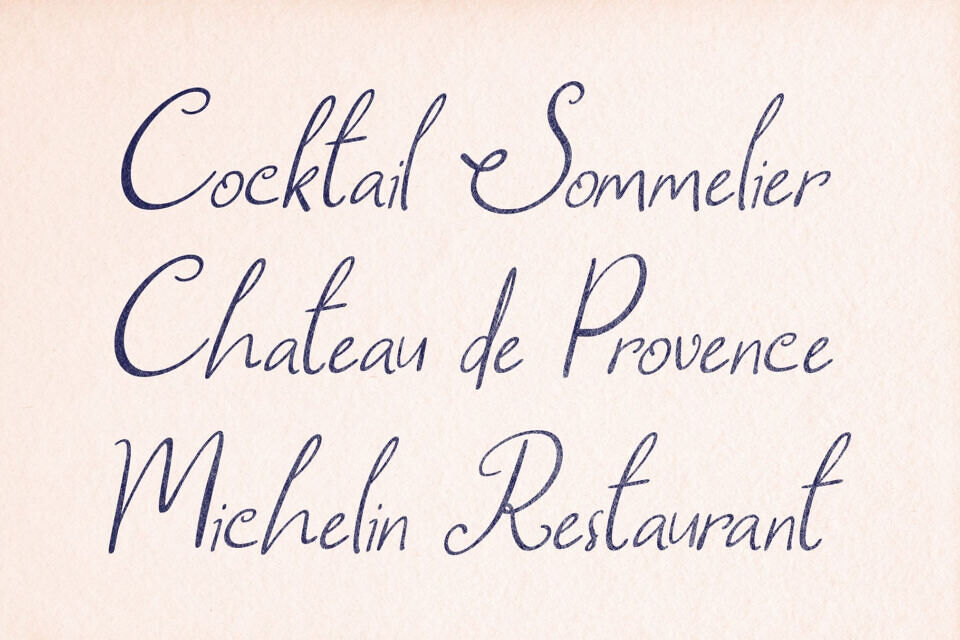 Cocktail Sommelier
Chateau de Provence
Michelin Restaurant